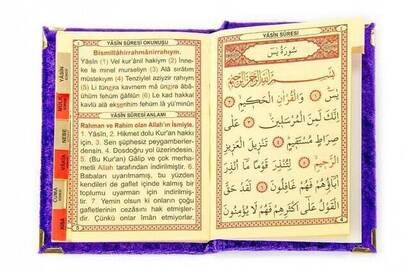 YÂSÎN SÛRESİ OKUNUŞU
Bismillâhirrahmânirrahîm.
Yâsîn (1) Vel kur'ânil hakiym (2) İnne-
ke le minel murseliyn (3) Alâ sırâtım
müstekıym (4) Tenziylel aziyzir rahıym
(5) Li tünzira kavmem mâ ünzira âbâ-
ühüm fehüm ğâfilûn (6) Le kad hakkal
kavlü alâ ekserihim fehüm lâ yü'minûn
YÂSÎN SÛRESİ ANLAMI
Rahman ve Rahim olan Allah'ın ismiyle.
1. Yâsîn, 2. Hikmet dolu Kur'an hakkı
için, 3. Sen şüphesiz peygamberler-
densin. 4. Dosdoğru yol üzerindesin.
5. (Bu Kur'an) Gâlip ve çok merha-
metli Allah tarafından indirilmiştir. 6.
Babaları uyarılmamış, bu yüzden
kendileri de gaflet içinde kalmış bir
toplumu uyarman için indirilmiş-
tir. 7 Yemin olsun ki onların çoğu
gafletlerinin cezâsını hak etmişler-
dir. Çünkü onlar îmân etmiyorlar.
YÂSÎN
MÜLK
NEBE
CUMA
سُورَةُ يٰسٓ
بِسْمِ اللّٰهِ الرَّحْمٰنِ الرَّحِيمِ
يٰسٓ ﴿١﴾ وَالْقُرْاٰنِ الْحَكِيمِ ﴿٢﴾
اِنَّكَ لَمِنَ الْمُرْسَلِينَ ﴿٣﴾ عَلٰى
صِرَاطٍ مُسْتَقِيمٍ ﴿٤﴾ تَنْزِيلَ الْعَزِيزِ
الرَّحِيمِ ﴿٥﴾ لِتُنْذِرَ قَوْمًا مَٓا اُنْذِرَ
اٰبَٓاؤُهُمْ فَهُمْ غَافِلُونَ ﴿٦﴾ لَقَدْ حَقَّ
الْقَوْلُ عَلٰٓى اَكْثَرِهِمْ فَهُمْ لَا يُؤْمِنُونَ